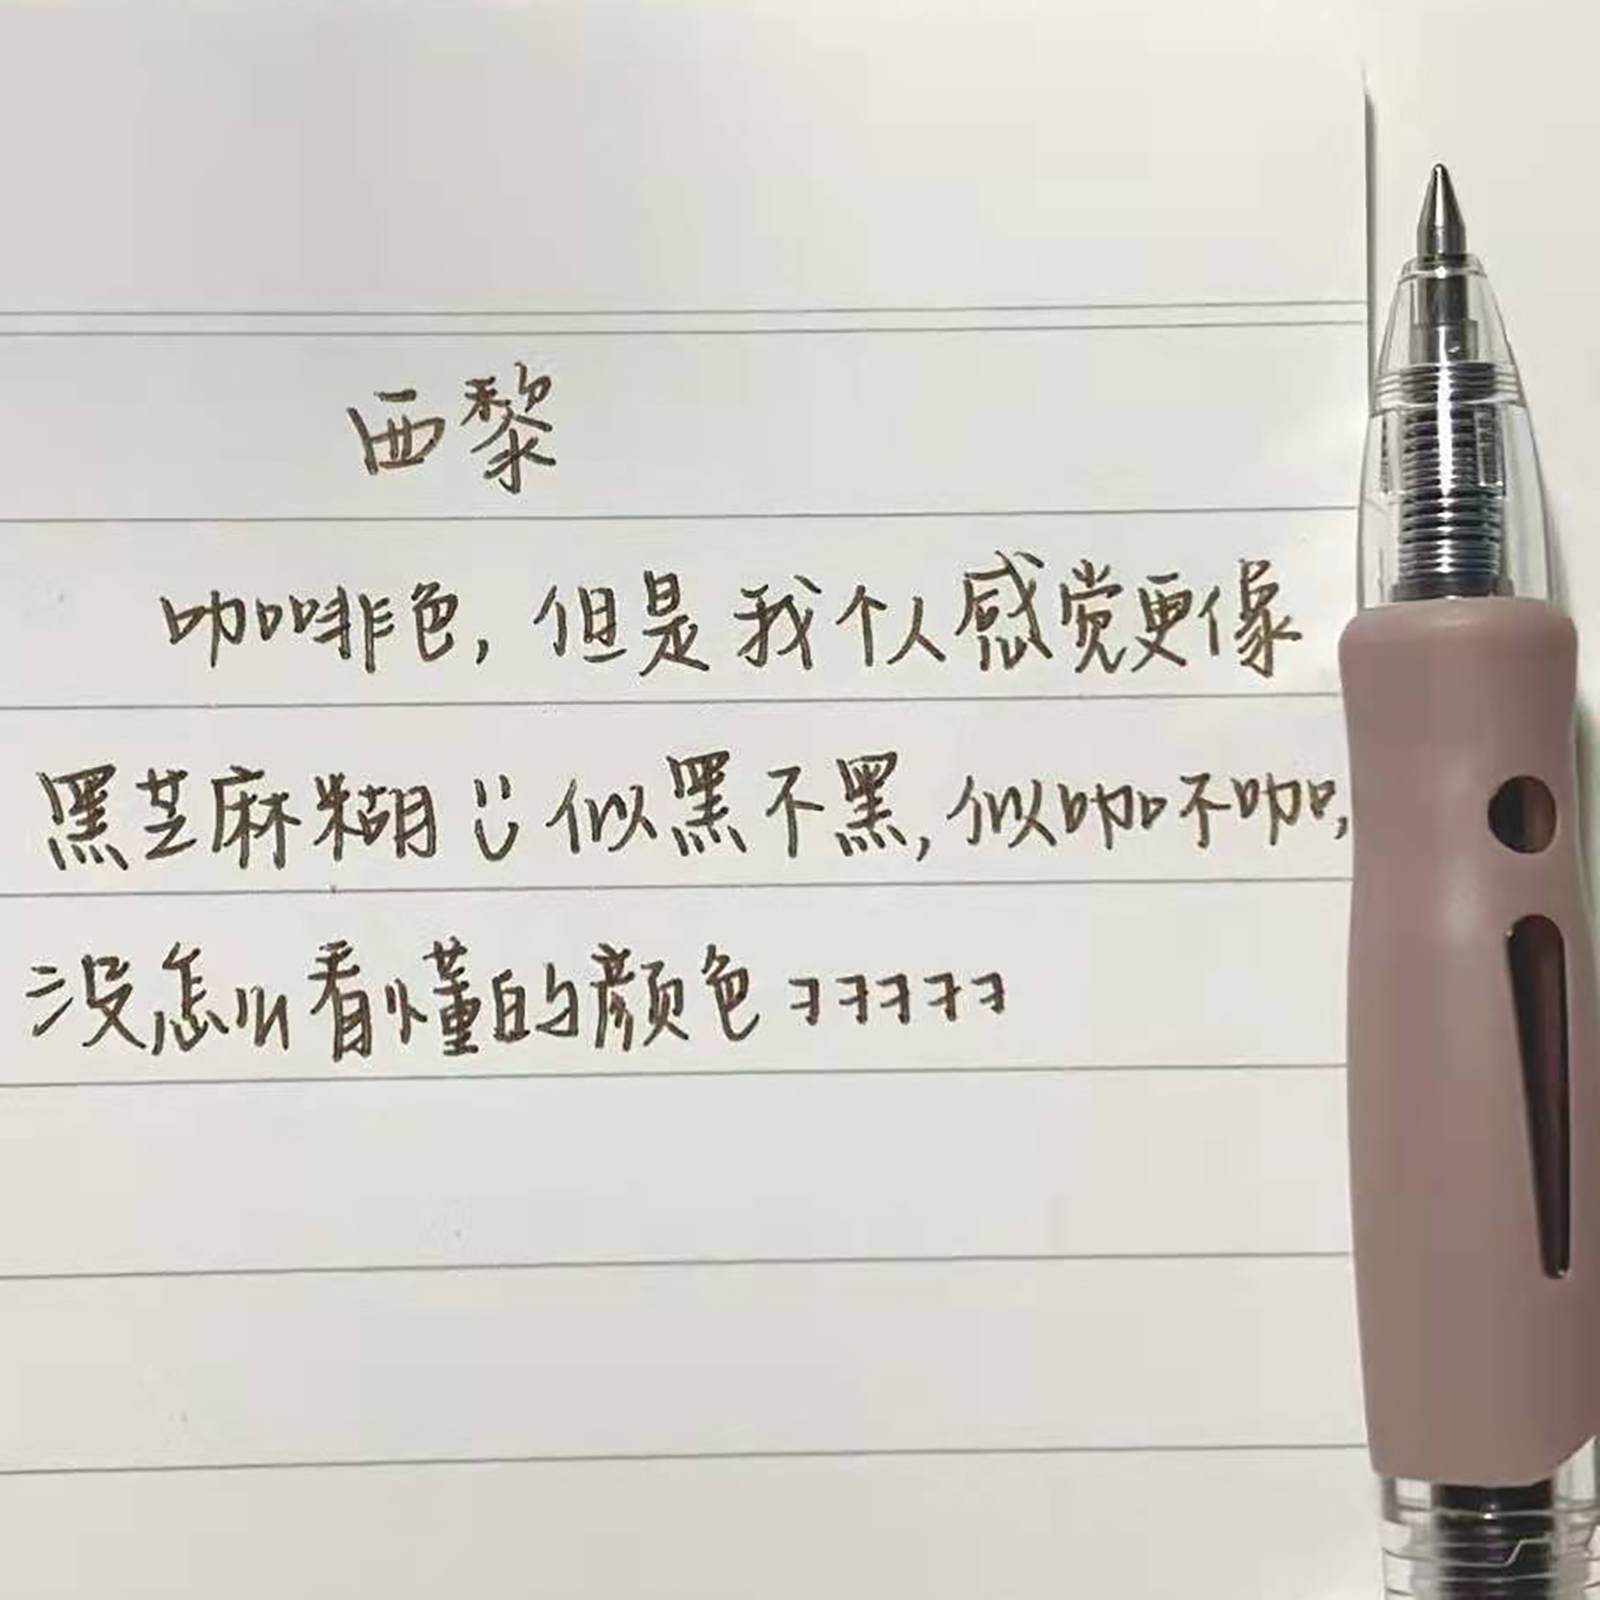 西黎
咖啡色，但是我个人感觉更像
黑芝麻糊 :) 似黑不黑，似咖不咖，
没怎么看懂的颜色ヨヨヨヨヨ